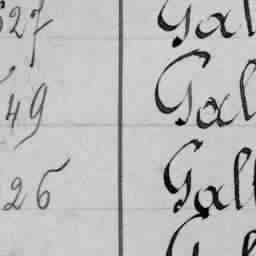 27 Gal
49 Gal
26 Gall